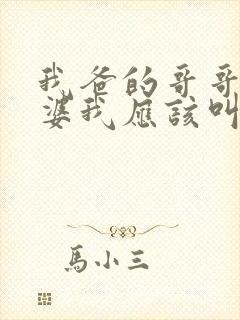 我爸的哥哥
婆我應該叫
馬小三